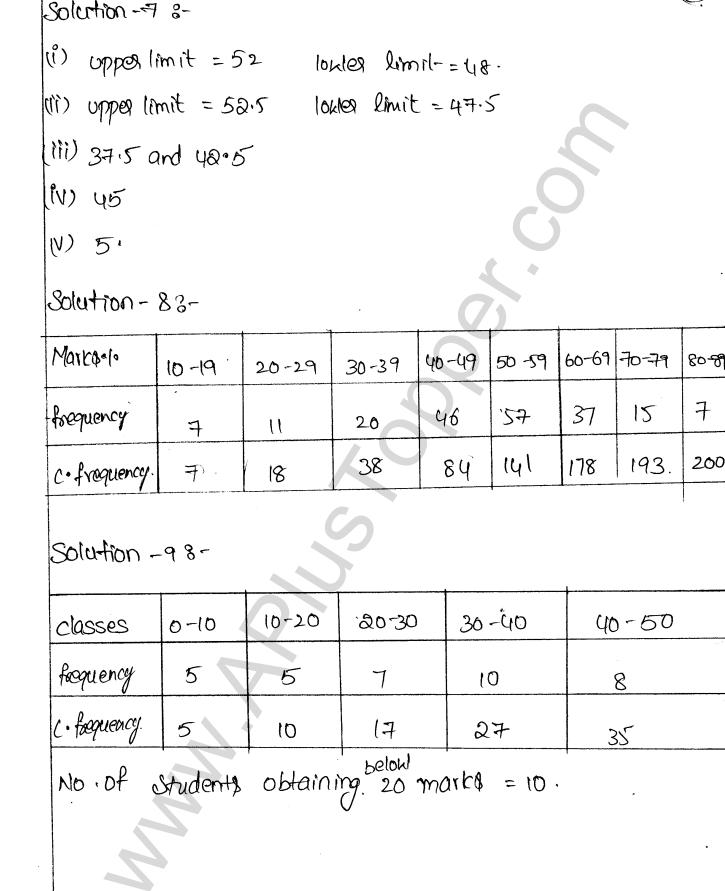 Solution-7 :-
(i) upper limit = 52 lower limit = 48.
(ii) upper limit = 52.5 lower limit = 47.5
(iii) 37.5 and 42.5
(iv) 45
(v) 5.
Solution-8:-
Marks% 10-19 20-29 30-39 40-49 50-59 60-69 70-79 80-89
frequency 7 11 20 46 57 37 15 7
c.frequency. 7 18 38 84 141 178 193. 200
Solution-9:-
classes 0-10 10-20 20-30 30-40 40-50
frequency 5 5 7 10 8
c.frequency. 5 10 17 27 35
No. of students obtaining below 20 marks = 10.
www.APlusTopper.com